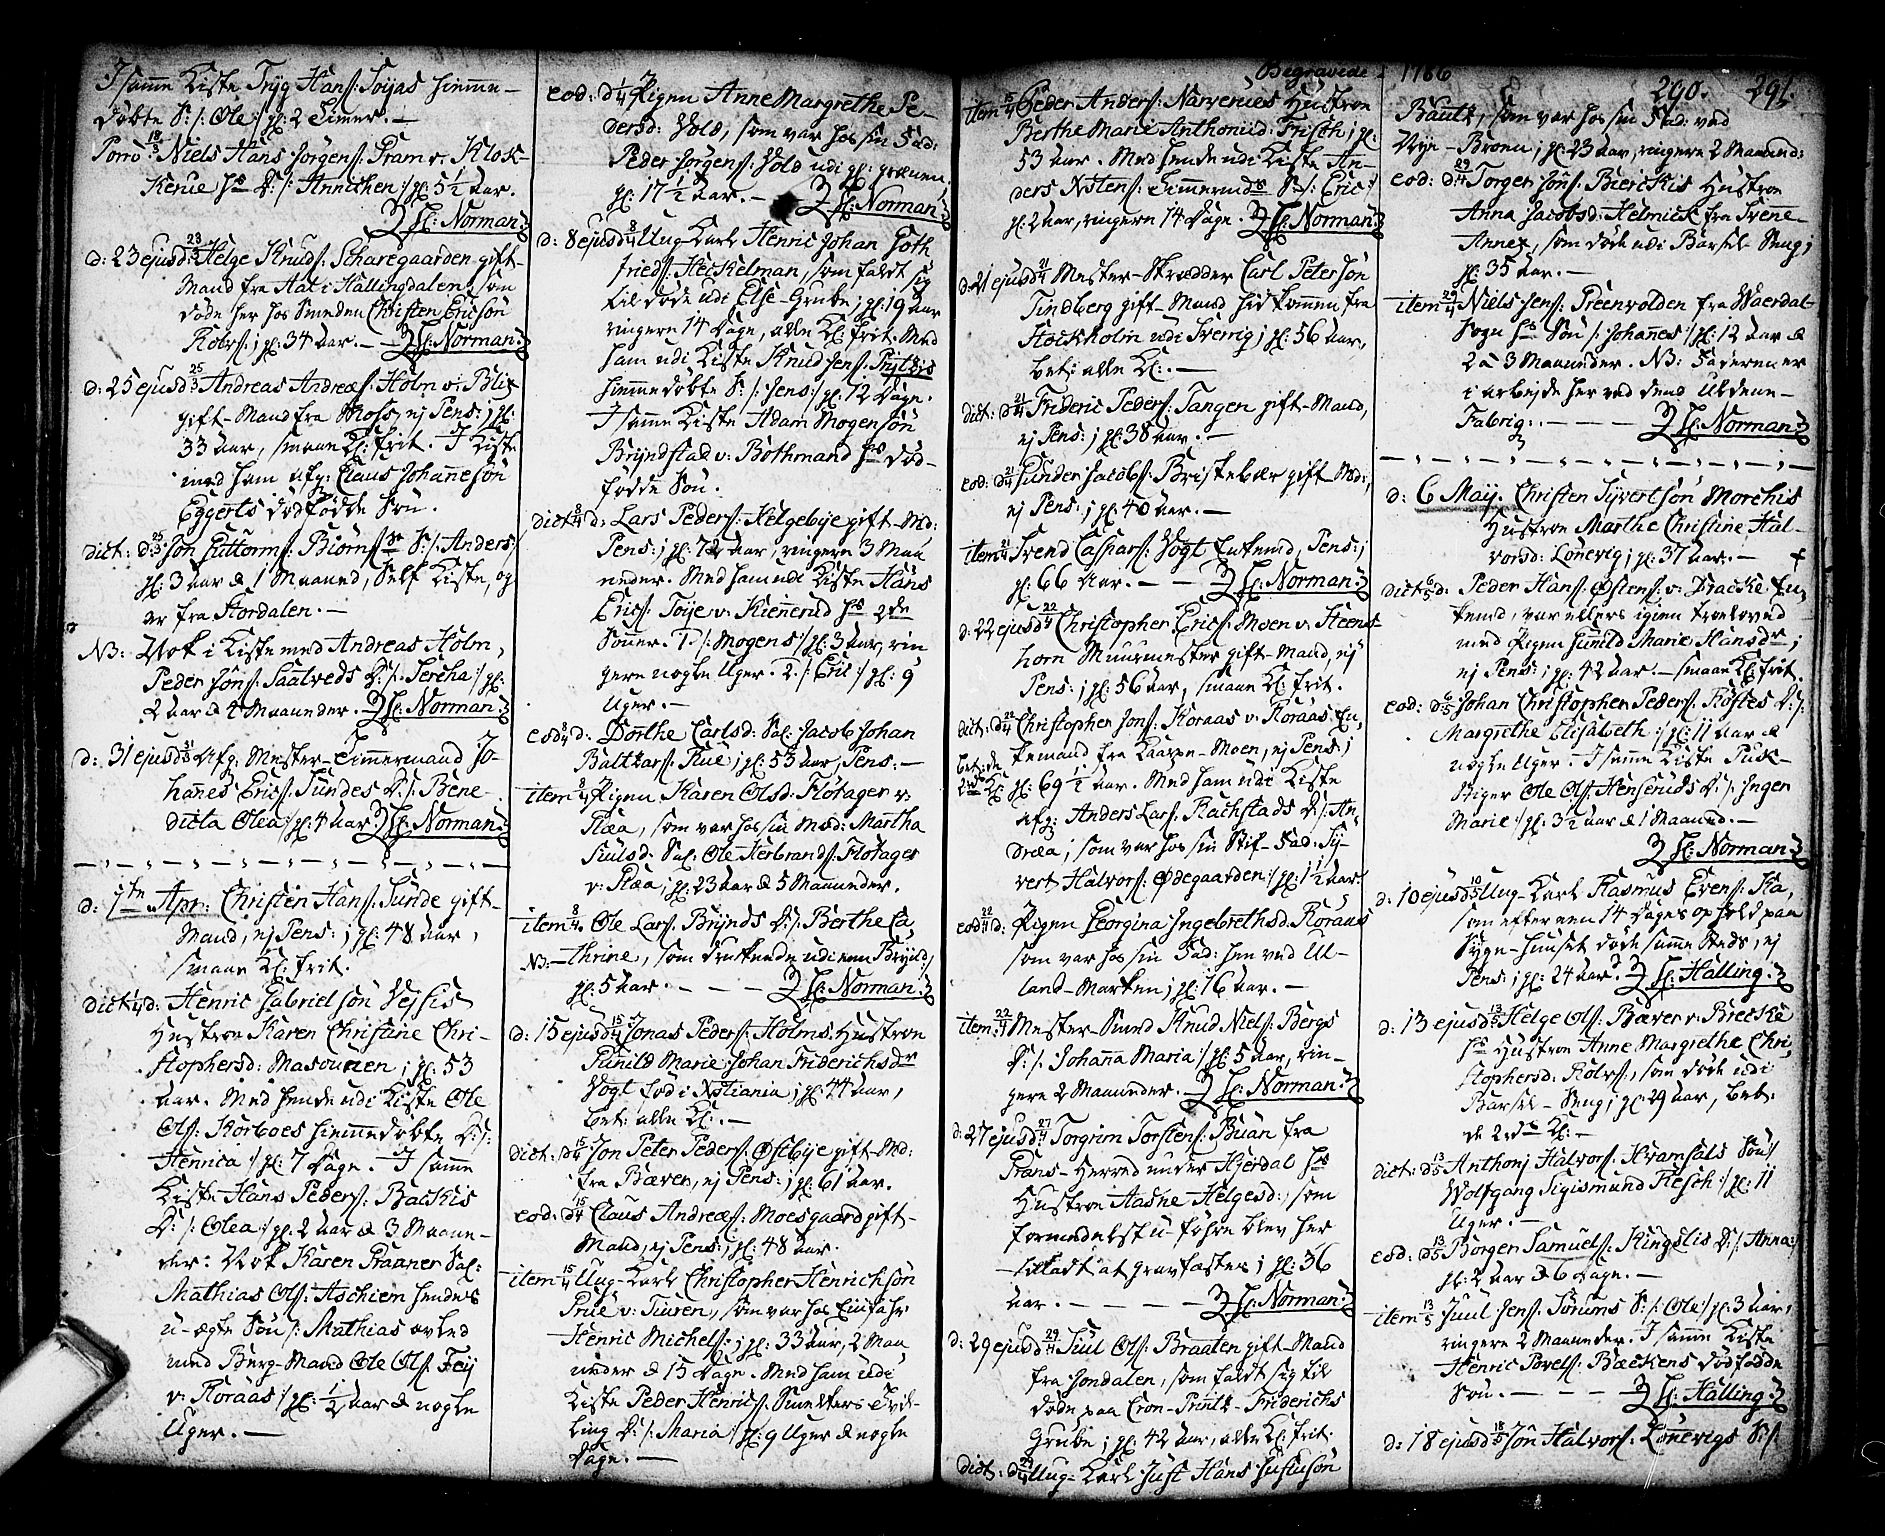 Begravede 1786
290. 291.
I samme Kiste Tryg Hans: Töyas hiemme-
döbte S: /: Ole:/ gl: 2 Timer. —
Porro 18/3 Niels Hans Jörgens: Pram v. Klok-
Kerue hs D: /: Annichen:/ gl: 5 1/2 aar.
H: Norman
d: 23 ejusd 23/3 Helge Knuds: Scharegaarden gift-
Mand fra Aal i Hallingdalen, som
döde her hos Smeden Christen Ericsön
Rolvs:; gl: 34 aar. — H: Norman
d: 25 ejusd 25/3 Andreas Andreæs: Holm v: Blix
gift-Mand fra Moss, ej Pens:; gl:
33 aar, smaae Kl: frit. I Kiste
med ham afg: Claus Johannesön
Eggerts dödfödde Sön.
dict: d: 25/3 Jon Guttorms: Biörns S: /: Anders:/
gl: 3 aar & 1 Maaned, Self Kiste, og
er fra Stordalen. —
NB: Nok i Kiste med Andreas Holm,
Peder Jöns: Saatveds D: /: Sercha:/ gl:
2 aar & 4 Maaneder. H: Norman
d: 31 ejusd 31/3 Afg: Mester-Timmermand Jo-
hannes Erics: Sundes D: /: Bene-
dicta Olea:/ gl: 4 aar H: Norman
d: 4te Apr: Christen Hans: Sunde gift-
Mand, ej Pens:; gl: 48 aar,
smaae Kl: frit.
dict 4/4 d: Henric Gabrielsön Vejsis
Hustroe Karen Christine Chri-
stophersd: Masovien; gl: 53
aar. Med hende udi Kiste Ole
Ols: Korboes hiemmedöbte D: /:
Henrica:/ gl: 7 Dage. I samme
Kiste Hans Peders: Backis
D: /: Olea:/ gl: 2 aar & 3 Maane-
der: Nok Karen Praaner Sal:
Mathias Ols: Aschiem hendes
u-ægte Sön /: Mathias avled
med Berg-Mand Ole Ols: Feij
v: Koraas:/ gl: 1/2 aar & nogle
Uger. —
eod: d 4/4 Pigen Anne Margrethe Pe-
dersd: Vold, som var hos sin Fad:
Peder Jörgens: Vold udi gl: graven,
gl: 17 1/2 aar. — H: Norman
d: 8 ejusd 8/4 Ung-Karl Henric Johan Goth
frieds: Heckelman, som faldt sig
til döde udi Else-Grube; gl: 19 aar
ringere 14 Dage, alle Kl: frit. Med
ham udi Kiste Knud Jens: Prytzes
hiemmedöbte S: /: Jens:/ gl: 12 Dage.
I samme Kiste Adam Mogensön
Bryndstad v: Bothmand hs död-
födde Sön.
dict 8/4 d: Lars Peders: Helgebye gift-Md:
Pens:; gl: 72 aar, ringere 3 Maa
neder. Med ham udi Kiste Hans
Erics: Töye v: Kiennerud hs 2de
Sönner. 1 /: Mogens:/ gl: 3 aar, rin
gere nogle Uger. 2. /: Eric:/ gl: 9
Uger. —
eod 8/4 d: Dorthe Carlsd: Sal: Jacob Johan
Baltzars: Rue; gl: 53 aar, Pens: —
item 8/4 Pigen Karen Olsd: Flötager v:
Raa, som var hos sin Mod: Martha
Juulsd: Sal: Ole Herbrands: Flotager
v: Raa; gl: 23 aar & 5 Maaneder.
item 8/4 Ole Lars: Brynds D: /: Berthe Ca,
NB: — thrine, som druknede udi een Brynd:/
gl: 5 aar. — H: Norman
d: 15 ejusd 15/4 Jonas Peders: Holms Hustroe
Gunild Marie Johan Friderichsdr
Vogt föd i Xstiania; gl: 44 aar,
bet: alle Kl: —
dict: d 15/4 Jon Peter Peders: Östbye gift-Md:
fra Bæver, ej Pens:; gl: 61 aar.
eod: d 15/4 Claus Andreæs: Moesgaard gift-
Mand, ej Pens:; gl: 48 aar.
item 15/4 Ung-Karl Christopher Henrichsön
Prue v: Tiuren, som var hos Einfahr
Henric Michels:; gl: 33 aar, 2 Maa
neder & 15 Dage. Med ham udi
Kiste Peder Henrics: Smelters Tvil-
ling D: /: Maria:/ gl: 9 Uger & nogle
Dage. —
item 15/4 Peder Anders: Narvenes Hustroe
Berthe Marie Anthonisd: Frisch; gl:
53 aar. Med hende udi Kiste An-
ders Nstens: Timmermds S: /: Eric:/
gl: 2 aar, ringere 14 Dage. H: Norman
d: 21 ejusd 21/4 Mester-Skrædder Carl Petersön
Tindberg gift-Mand hidkommen fra
Stockholm udi Sverrig; gl: 56 aar,
bet: alle Kl: —
dict: d 21/4 Frideric Peders: Tangen gift-Mand,
ej Pens:; gl: 38 aar. —
eod: d 21/4 Gunder Jacobs: Bristebær gift-Md:,
ej Pens:; gl: 40 aar. —
item 21/4 Svend Caspars: Vogt Enkemd, Pens:;
gl: 66 aar. — H: Norman
d: 22 ejusd 22/4 Christopher Erics: Moen v. Steens
horn Muurmester gift-Mand, ej
Pens:; gl: 56 aar, smaae Kl: frit.
dict: d 22/4 Christopher Jons: Koraas v: Koraas En-
bet: de kemand fra Kaaren-Moen, ej Pens:;
2rde Kl: gl: 69 1/2 aar. Med ham udi Kiste
afg: Anders Lars: Rachstads D: /: An-
dræa; som var hos sin Stif-Fad: Sy-
vert Halvors: Ödegaarden:/ gl: 1 1/2 aar.
eod 22/4 d: Pigen Georgina Ingebrethsd: Koraas
som var hos sin Fad: hen ved Ul-
land-Marken; gl: 16 aar. —
item: 22/4 Mester-Smed Knud Niels: Bergs
D: /: Johanna Maria:/ gl: 5 aar, rin-
gere 2 Maaneder. H: Norman
d: 27 ejusd 27/4 Torgrim Torstens: Buan fra
Prans-Herred under Hjerdal hs
Hustroe Aasne Helgesd:, som
formedelst u-föhre blev her
tilladt at gravfæstes; gl: 36
aar. — H: Norman
d: 29 ejusd 29/4 Juul Ols: Braaten gift-Mand
fra Jondalen, som faldt sig til
döde paa Cron-Printz-Friderichs
Grube; gl: 42 aar, alle Kl: frit.
dict: d 29/4 Ung-Karl Just Hans Justusön
Bautz, som var hos sin Fad: ved
Nye-Broen; gl: 23 aar, ringere 2 Maaned:
eod: d 29/4 Torger Jöns: Bierckis Hustroe
Anna Jacobsd: Helmick fra Svene-
Annex, som döde udi Barsel Seng;
gl: 35 aar. —
item 29/4 Niels Jens: Preenvolden fra Waerdal-
Sogn hs Sön /: Johannes:/ gl: 12 aar &
2 a 3 Maaneder. NB: Faderen er
i arbejde her ved dend Uldene-
Fabriq: — H: Norman
d: 6 Maij. Christen Syvertsön Morchis
Hustroe Marthe Christine Hal-
vorsd: Lonevig; gl: 37 aar. —
dict 6/5 d: Peder Hans Östens: v: Bracke En,
kemd, var ellers igien trolovd
med Pigen Gunild Marie Hansdr;
ej Pens:; gl: 42 aar. — smaae Kl: frit.
eod: d 6/5 Johan Christopher Peders: Röstes D: /:
Margrethe Elisabeth:/ gl: 11 aar &
nogle Uger. I samme Kiste Puk-
stiger Ole Ols: Hensruds D: /: Inger
Marie:/ gl: 3 1/2 aar & 1 Maaned. —
H: Norman
d: 10 ejusd 10/5 Ung-Karl Rasmus Evens: Haa
som efter een 14 Dages ophold paa
Syge-Huuset döde samme Steds, ej
Pens:; gl: 24 aar. H: Halling
d: 13 ejusd 13/5 Helge Ols: Bæver v: Brecke
hs Hustroe Anne Margrethe Chri,
stophersd: Rolvs:, som döde udi
Barsel-Seng; gl: 29 aar, bet:
de 2rde Kl: —
dict: d 13/5 Anthonj Halvors: Hvamsals Sön /:
Wolfgang Sigismund Resch:/ gl: 11
Uger. —
eod: d 13/5 Börger Samuels: Kingslis D: /: Anna:/
gl: 2 aar & 6 Dage. —
item 13/5 Juul Jens: Sörums S: /: Ole:/ gl: 3 aar,
ringere 2 Maaneder. I samme Kiste
Henric Povels: Beckens dödfödde
Sön. — H: Halling
d: 18 ejusd 18/5 Jon Halvors: Lonevigs S: /: